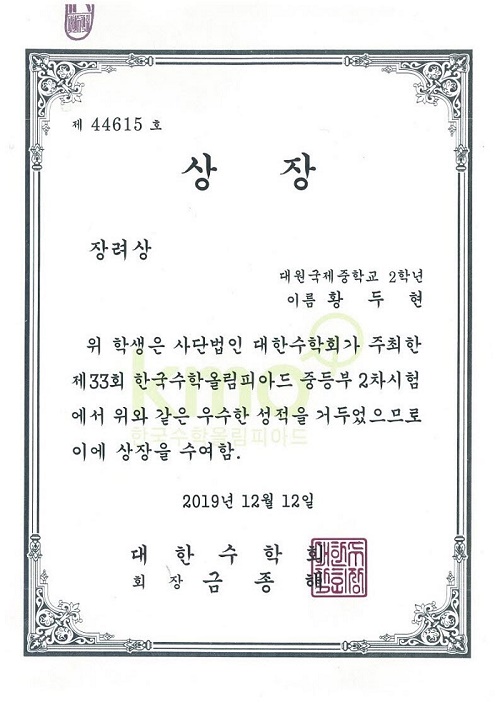 제 44615 호
상 장
장려상
대원국제중학교 2학년
이름 황 두 현
위 학생은 사단법인 대한수학회가 주최한
제33회 한국수학올림피아드 중등부 2차시험
에서 위와 같은 우수한 성적을 거두었으므로
이에 상장을 수여함.
kmo
한국수학올림피아드
2019년 12월 12일
대 한 수 학 회
회 장 금 종 해